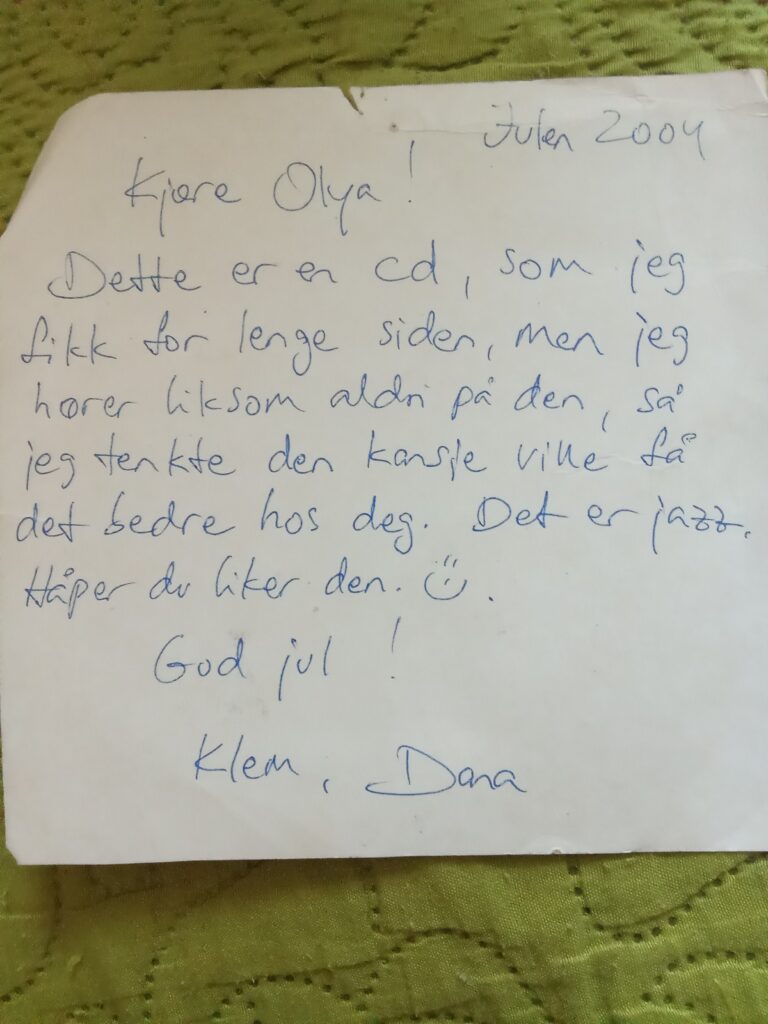 Julen 2004
Kjære Olya!
Dette er en cd, som jeg
fikk for lenge siden, men jeg
hører liksom aldri på den, så
jeg tenkte den kansje ville få
det bedre hos deg. Det er jazz.
Håper du liker den. ☺.
God jul !
Klem, Dana